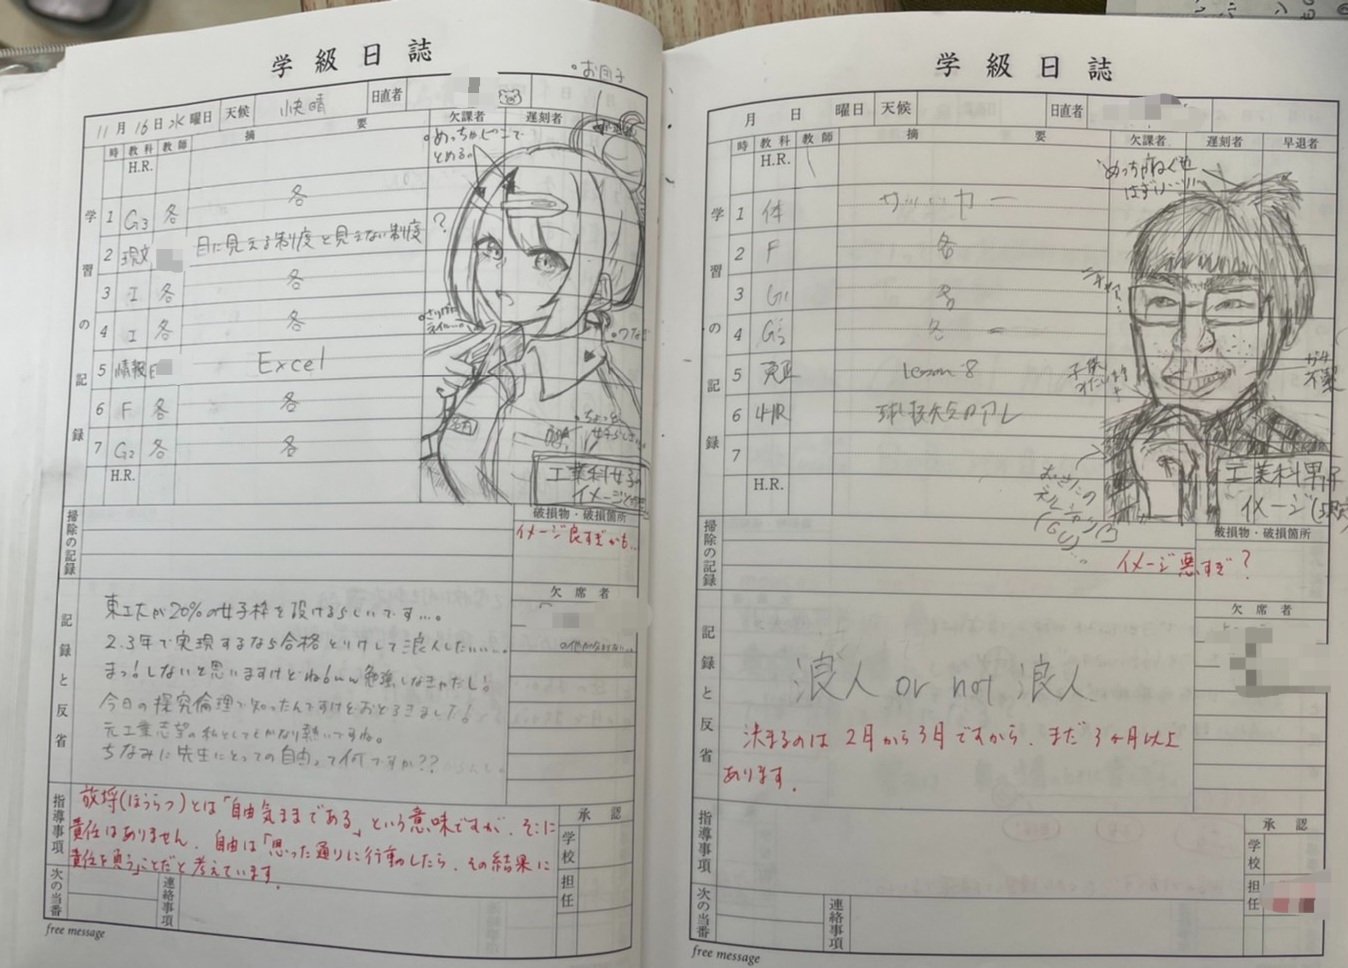 学級日誌
お団子
11月16日水曜日 天候 快晴 日直者
時 教科 教師 摘要 欠課者 遅刻者
めっちゃピンで
とめる。
学習の記録
H.R.
1 G3 各 各
2 現文 目に見える制度と見えない制度 ?
3 I 各 各
4 I 各 各
5 情報 Excel
6 F 各 各
7 G2 各 各
H.R.
つなぎ
ちょっと
工業科女子の
イメージ
掃除の記録
破損物・破損箇所
イメージ良すぎかも…
記録と反省
欠席者
東工大が20%の女子枠を設けるらしいです…。
2.3年で実現するなら合格とりけして浪人したい…。
まっ!しないと思いますけどねwww勉強しなきゃだし!
今日の探究倫理で知ったんですけどおどろきました!
元工業志望の私としてもかなり熱いですね。
ちなみに先生にとっての自由って何ですか??
指導事項
放埒(ほうらつ)とは「自由気ままである」という意味ですが、そこに
責任はありません。自由は「思った通りに行動したら、その結果に
責任を負う」ことだと考えています。
承認
学校
担任
次の当番
連絡事項
free message
学級日誌
月 日 曜日 天候 日直者
時 教科 教師 摘要 欠課者 遅刻者 早退者
めっちゃねぐせ
はずい…!!!
学習の記録
H.R.
1 体 サッカー
2 F 各
3 G1 各
4 G2 各
5 英コ lesson 8
6 LHR
7
H.R.
ガチ
不潔
工業科男子
イメージ
掃除の記録
破損物・破損箇所
イメージ悪すぎ?
記録と反省
欠席者
浪人 or not 浪人
決まるのは2月から3月ですから、まだ3ヶ月以上
あります。
指導事項
承認
学校
担任
次の当番
連絡事項
free message